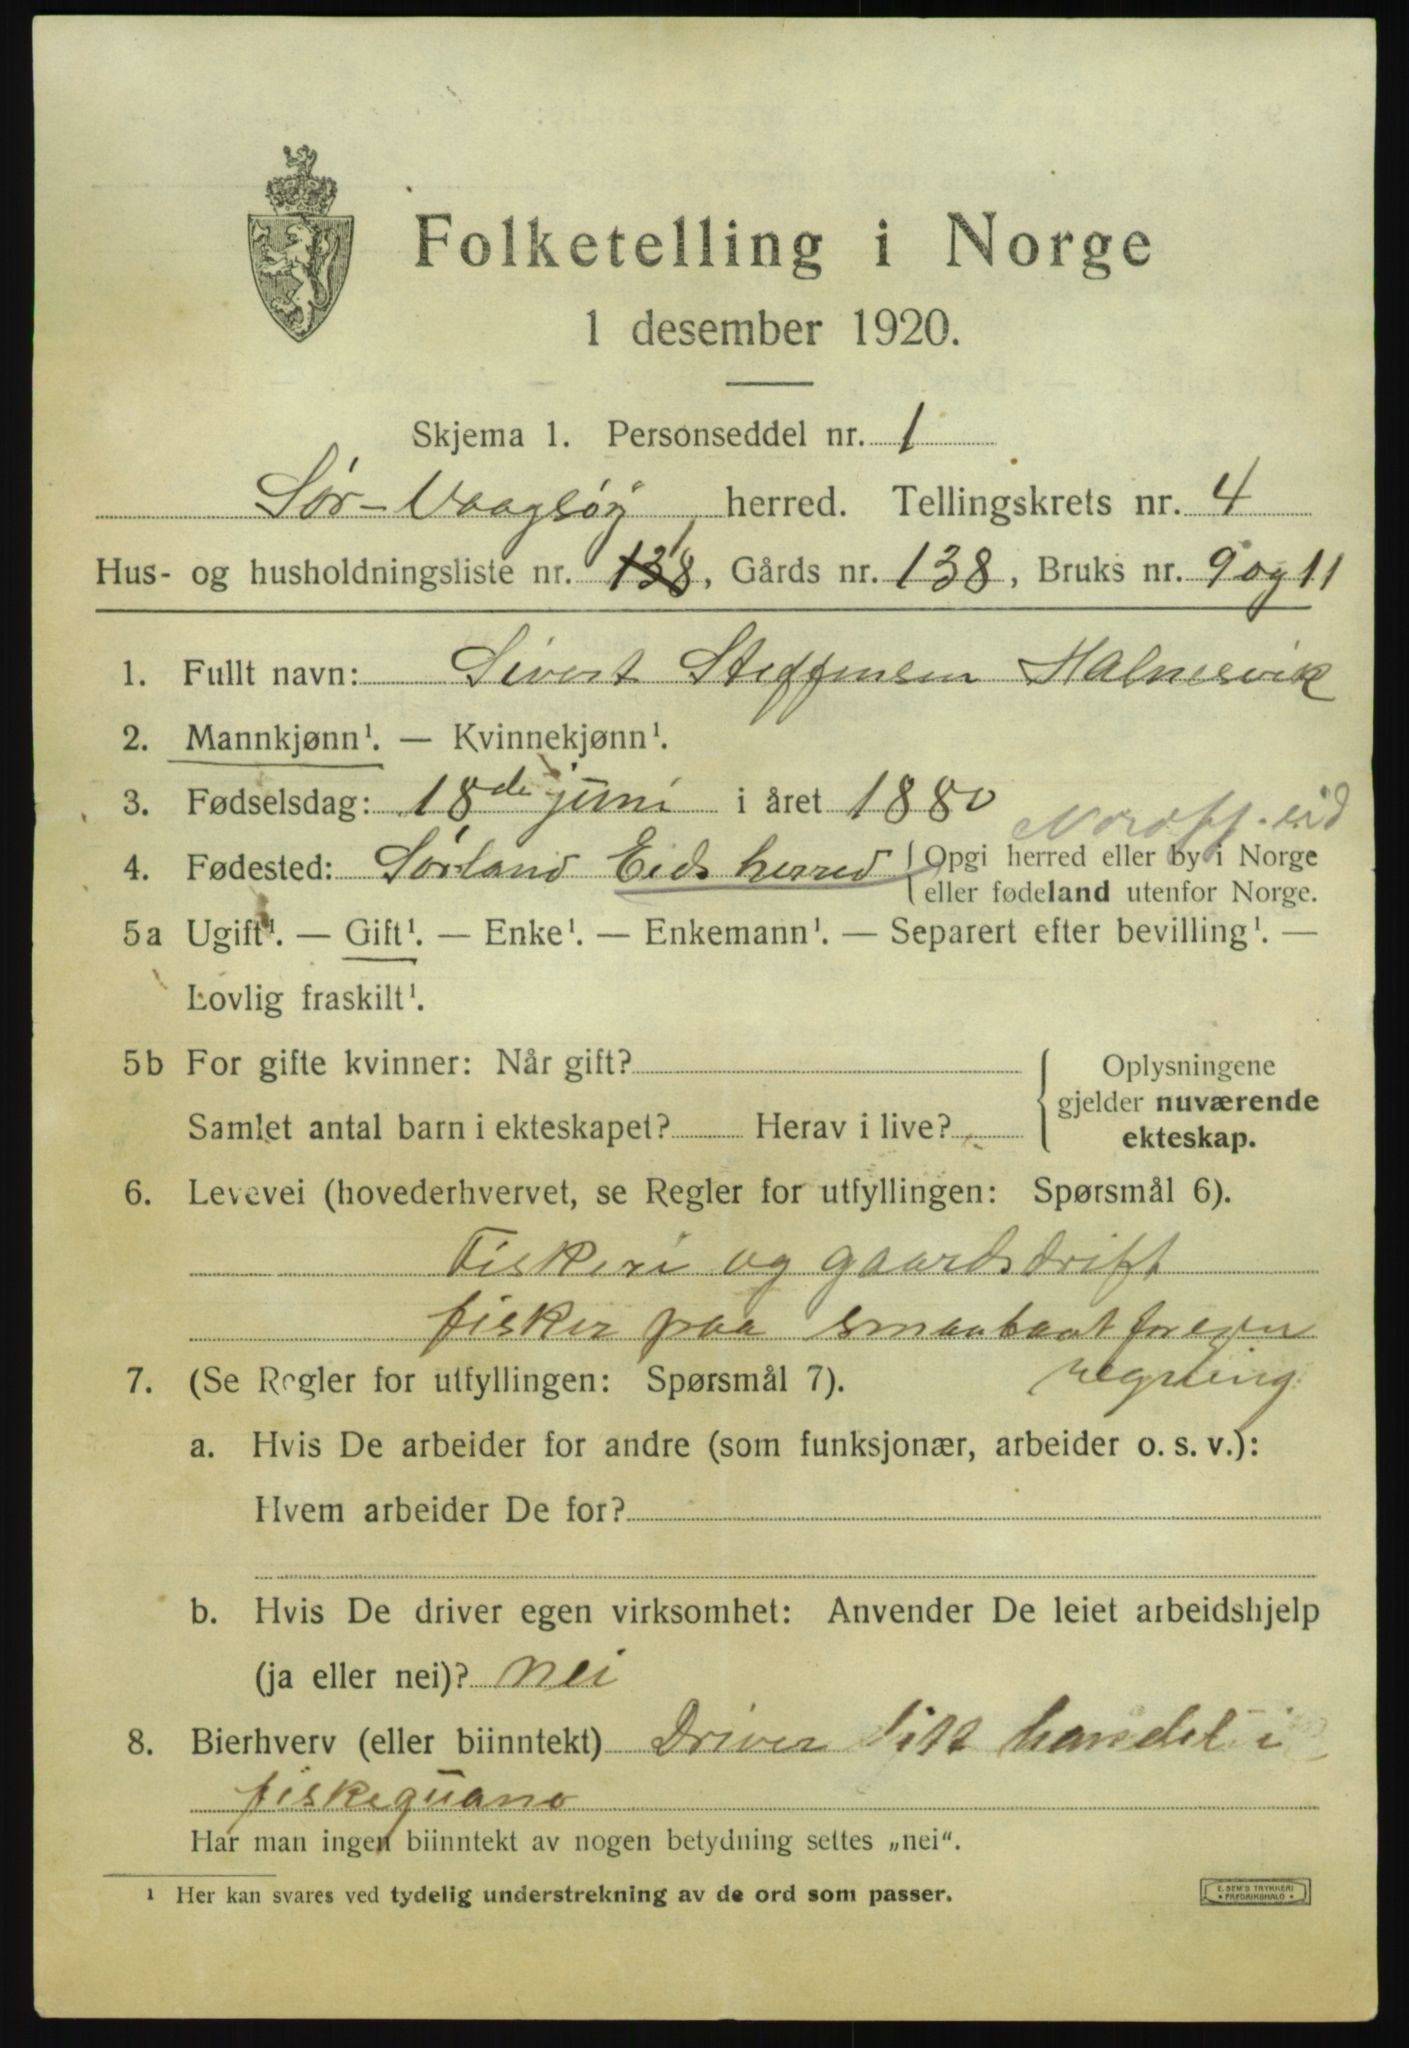 Folketelling i Norge
1 desember 1920.
Skjema 1. Personseddel nr. 1
Sør-Vaagsøy herred. Tellingskrets nr. 4
1
Hus- og husholdningsliste nr. 138, Gårds nr. 138, Bruks nr. 9 og 11
1. Fullt navn: Sivert Steffensen Halnesvik
2. Mannkjønn¹. — Kvinnekjønn¹.
3. Fødselsdag: 18de juni i året 1880
Nordfj. eid
4. Fødested: Sørland Eids herred { Opgi herred eller by i Norge
eller fødeland utenfor Norge.
5a Ugift¹. — Gift¹. — Enke¹. — Enkemann¹. — Separert efter bevilling¹. —
Lovlig fraskilt¹.
5b For gifte kvinner: Når gift? { Oplysningene
gjelder nuværende
Samlet antal barn i ekteskapet? Herav i live? ekteskap.
6. Levevei (hovederhvervet, se Regler for utfyllingen: Spørsmål 6).
Fiskeri og gaardsdrift
fisker paa smaabaat for egen
regning
7. (Se Regler for utfyllingen: Spørsmål 7).
a. Hvis De arbeider for andre (som funksjonær, arbeider o. s. v.):
Hvem arbeider De for?
b. Hvis De driver egen virksomhet: Anvender De leiet arbeidshjelp
(ja eller nei)? nei
8. Bierhverv (eller biinntekt) Driver litt handel i
fiskeguano
Har man ingen biinntekt av nogen betydning settes „nei“.
¹ Her kan svares ved tydelig understrekning av de ord som passer.
E. SEM'S TRYKKERI
FREDRIKSHALD